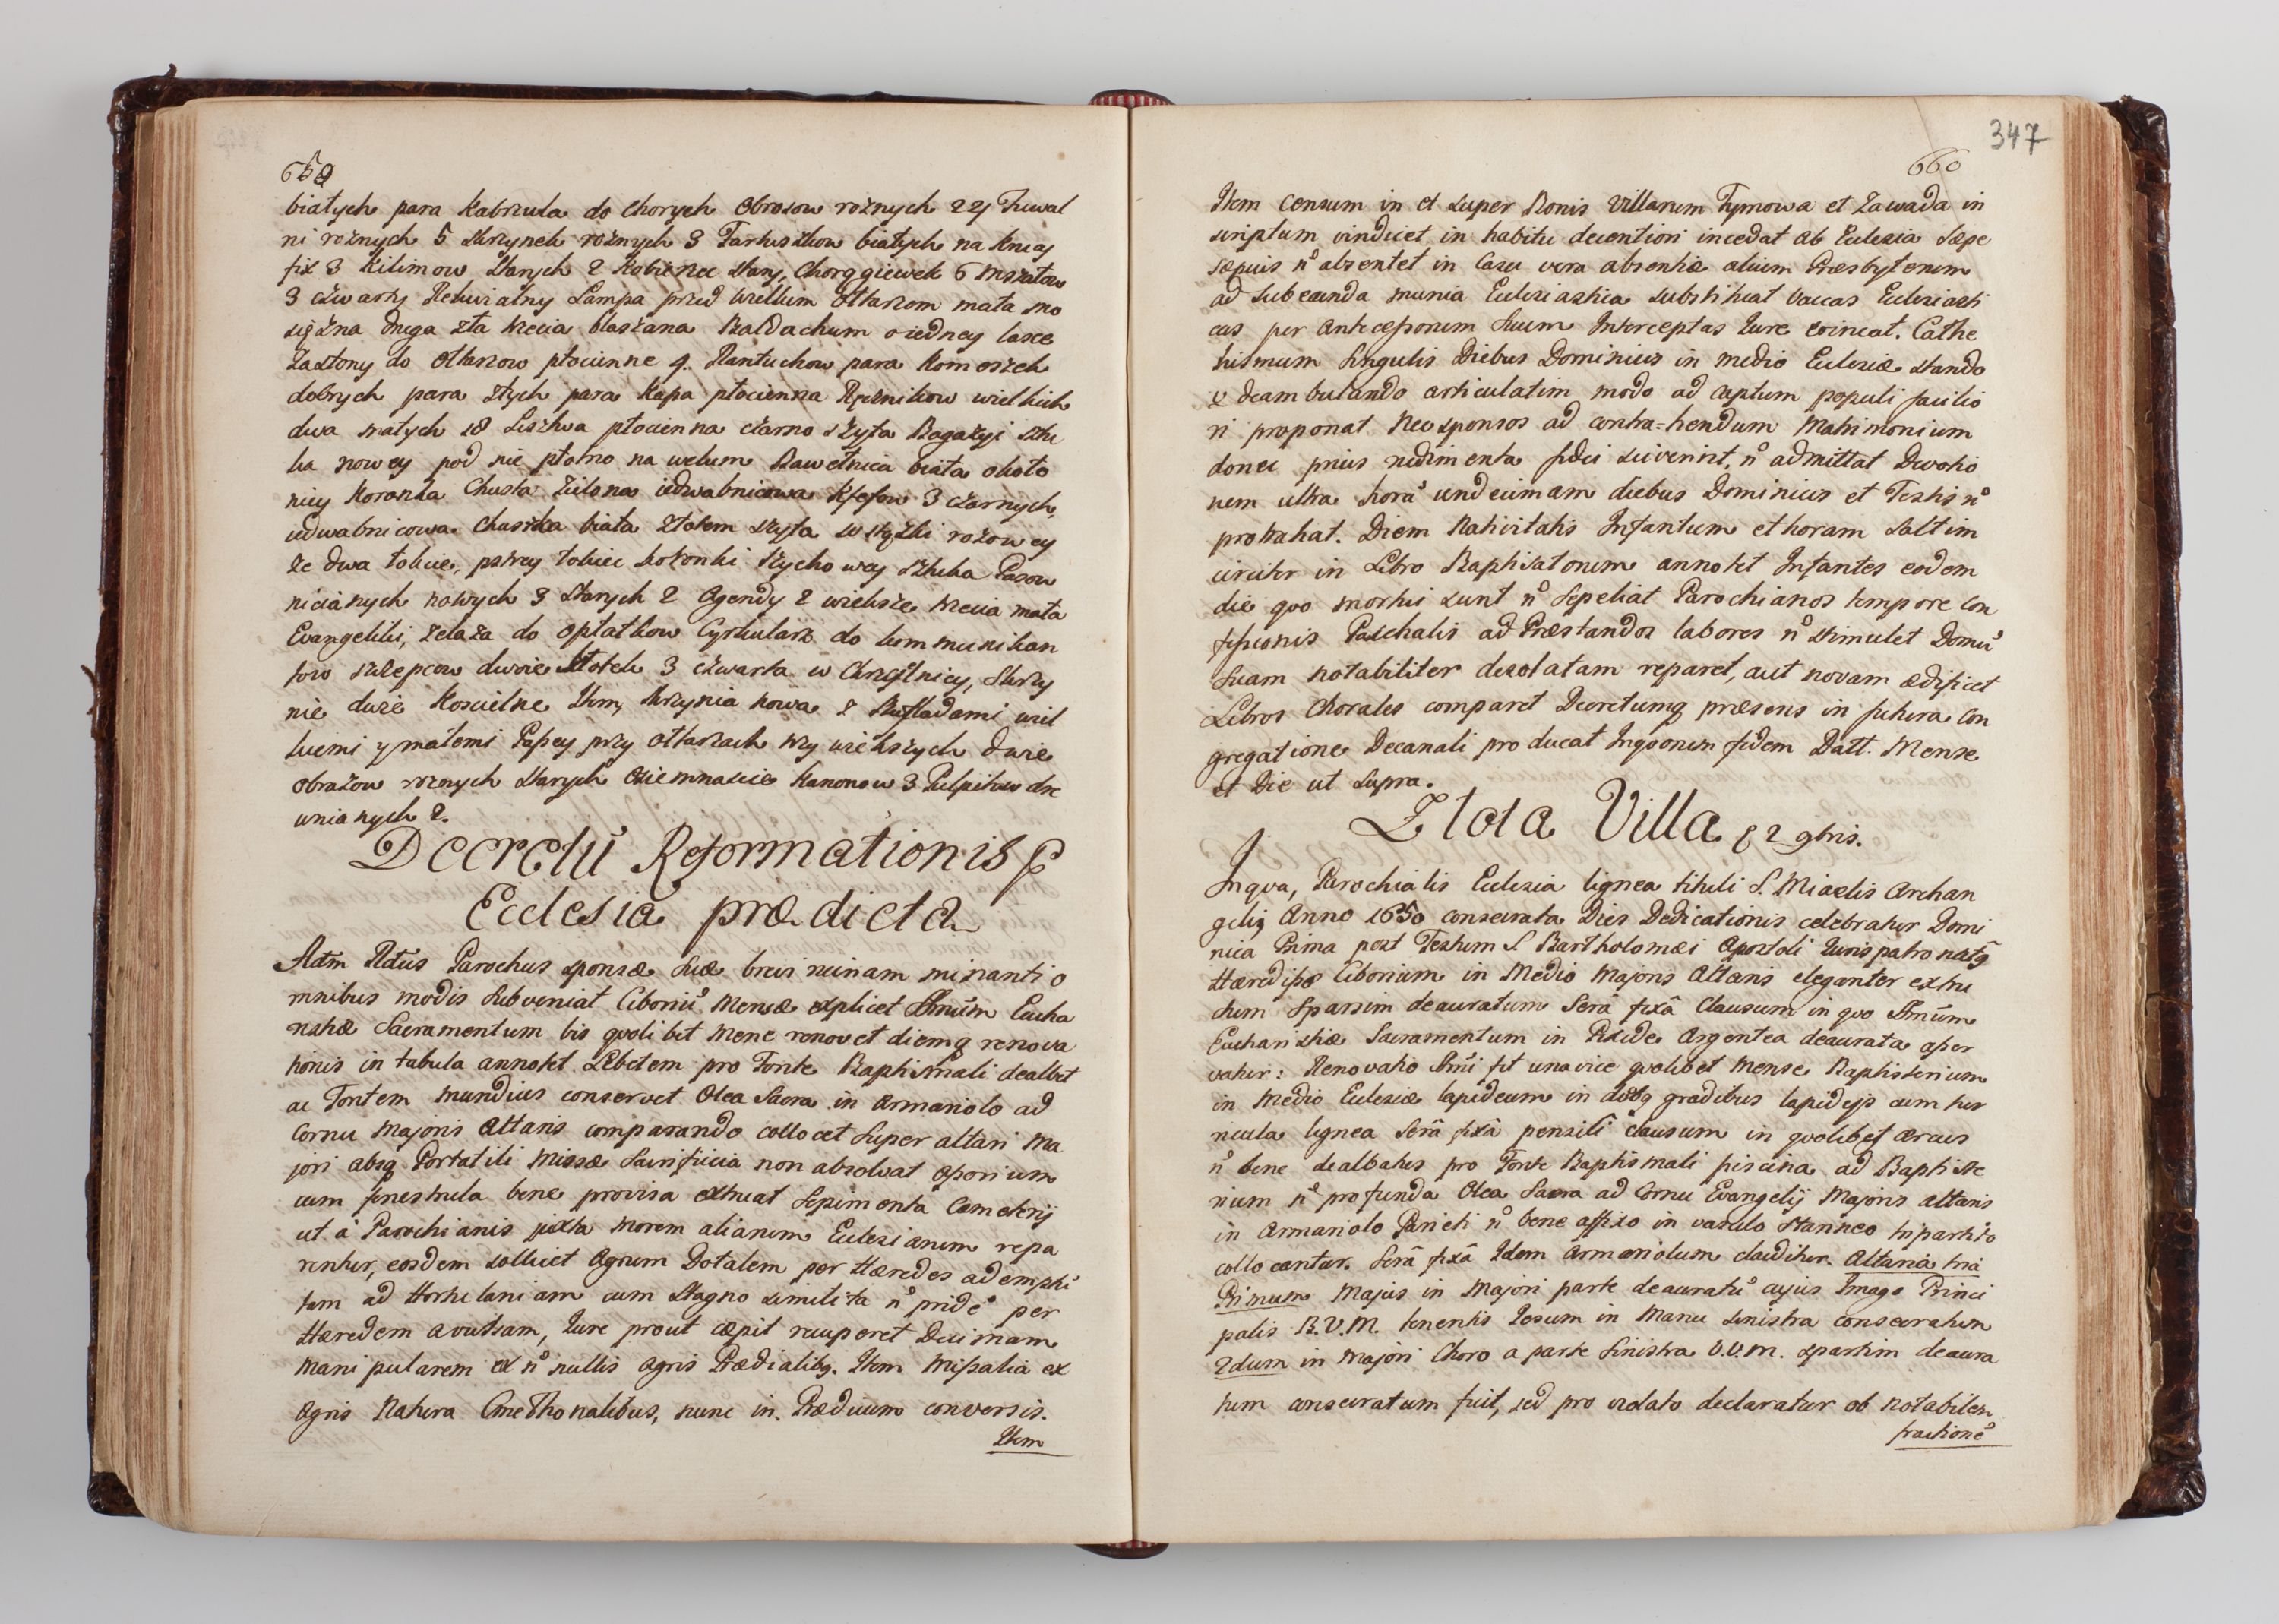 659
białych para kabrzuta do chorych Obrosow rożnych 24 Tuwal
ni rożnych 5 skrzynek rożnych 3 Fartuszkow białych na krucy
fix 3 Kilimow starych 2 Kobierzec stary, Chorągiewek 6 Mszałow
3 czwarty Rekwialny Lampa przed wielkim Ołtarzem mała mo
siężna druga zła trzecia blaszana Baldachum o iedney lasce
Zasłony do Ołtarzow płocienne 4. Rantuchow para Komoszek
dobrych para złych para Kapa płocienna Ręcznikow wielkich
dwa małych 18 Liszwa płocienna czarno szyta Bagażyi sztu
ka nowey pod nie płotno na welum Bawełnica biała około
niey Koronka Chusta Zielona iedwabnicowa Kfefow 3 czarnych
iedwabnicowa Chustka biała złotem szyta wstążki rożowey
ze dwa łokcie, pstrey łokiec koronki szychowey sztuka Pasow
nicianych nowych 3 starych 2 Agendy 2 wieksze trzecia mała
Evangeliki, żelaza do opłatkow Cyrkularz do kommunikan
tow sklepcow dwoie Stołek 3 czwarta w Chrzęstnicy, Skrzy
nie duże Koscielne Item, skrzynia nowa z Szufladami wiel
kiemi y małemi Papey przy ołtarzach trzy większych dwie
Obrazow rożnych starych osiemnascie Kanonow 3 Pulpitow dre
wnianych 2.
Decretū Reformationis
Ecclesia prædicta
Adm Rdus Parochus sponsæ suæ brevi ruinam minanti o
mnibus modis subveniat Ciboriū Mensæ explicet Smūm Eucha
ristiæ Sacramentum bis qvolibet Mense renovet diemq renova
tionis in tabula annotet. Lebetem pro Fonte Baptismali dealbet
ac Fontem mundius conservet Olea Sacra in Armariolo ad
Cornu Majoris Altaris comparando collocet super altari Ma
jori absq Portatili Missæ Sacrificia non absolvat Oporium
cum fenestrula bene provisa extruat Sepimenta Cæmeterij
ut à Parochianis juxta morem aliarum Ecclesiarum repa
rentur, eosdem sollicit Agrum Dotalem per Hæredes ademptū
tam ad Hortulaniam cum Stagno similita nō pridē per
Hæredem avulsam, Jure prout cæpit recuperet Decimam
Manipularem ex nō nullis agris Prædialibq. Item Missalia ex
Agris Natura Cmethonalibus, nunc in Prædium conversis.
Item
347
660
Item Censum in et super Bonis Villarum Tymowa et Zawada in
scriptum vindicet in habitu decentiori incedat ab Ecclesia sæpe
sæpius nō absentet in Casu vera absentiæ alium Præsbyterum
ad subeunda munia Ecclesiastica substituat Vaccas Ecclesiasti
cas per Antecessorum suum Interceptas Jure evincat. Cathe
hismum singulis Diebus Dominicis in medio Ecclesiæ stando
v deambulando articulatim modo ad captum populi facilio
ri proponat Nec sponsos ad contra=hendum Matrimonium
donec prius rudimenta fidei sciverint, nō admittat Devotio
nem ultra horā undecimam diebus Dominicis et Festis nō
protrahat. Diem Nativitatis Infantum et horam saltim
circiter in Libro Baptisatorum annotet Infantes eodem
die qvo mortui sunt nō sepeliat Parochianos tempore Con
fessionis Paschalis ad Præstandos labores nō stimulet Domū
suam notabiliter desolatam reparet, aut novam ædificet
Libros Chorales comparet Decretumq præsens in futura Con
gregatione Decanali producat Inqvorum fidem Datt. Mense
et Die ut supra.
Zlota Villa 2 9bris.
Inqva, Parochialis Ecclesia lignea tituli S. Michaelis Archan
gelij Anno 1650 consecrata Dies Dedicationis celebratur Domi
nica Prima post Festum S Bartholomæi Apostoli Jurispatronatq
Hæredisq Ciborium in Medio Majoris Altaris eleganter extru
ctum sparsim deauratum Serâ fixâ clausum in qvo Smūm
Eucharistiæ Sacramentum in Pixide Argentea deaurata asser
vatur: Renovatio Smi fit una vice qvolibet Mense Baptisterium
in Medio Ecclesiæ lapideum in dobq gradibus lapideis cum tur
ricula lignea Serâ fixâ pensili clausum in qvolibet ærcus
nō bene dealbatus pro Fonte Baptismali piscina ad Baptiste
rium nō profunda Olea Sacra ad Cornu Evangelij Majoris altaris
in Armariolo Parieti nō bene affixo in vasculo Stanneo tripartito
collocantur. Serâ fixâ Idem Armariolum clauditur. Altaria tria
Primum Majus in Majori parte deauratū cujus Imago Princi
palis B.V.M. tenentis Jesum in Manu sinistra consecratum
2dum in Majori Choro a parte Sinistra B.V.M. spartim deaura
tum consecratum fuit, sed pro violato declaratur ob notabilem
fractionē